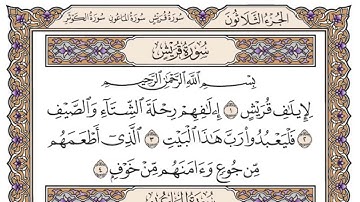 الجزء الثلاثون سورة قريش سورة الماعون سورة الكوثر
سورة قريش
بِسْمِ ٱللَّهِ ٱلرَّحْمَٰنِ ٱلرَّحِيمِ
لِإِيلَٰفِ قُرَيْشٍ ١ إِۦلَٰفِهِمْ رِحْلَةَ ٱلشِّتَآءِ وَٱلصَّيْفِ
٢ فَلْيَعْبُدُوا۟ رَبَّ هَٰذَا ٱلْبَيْتِ ٣ ٱلَّذِىٓ أَطْعَمَهُم
مِّن جُوعٍ وَءَامَنَهُم مِّنْ خَوْفٍۭ ٤
سورة الماعون